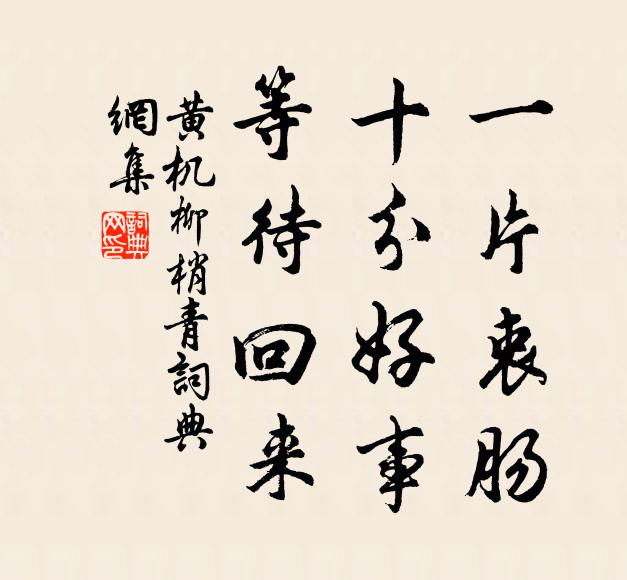 一片衷肠
十分好事
等待回来
黄机柳梢青詞典
網集
詞典
网印